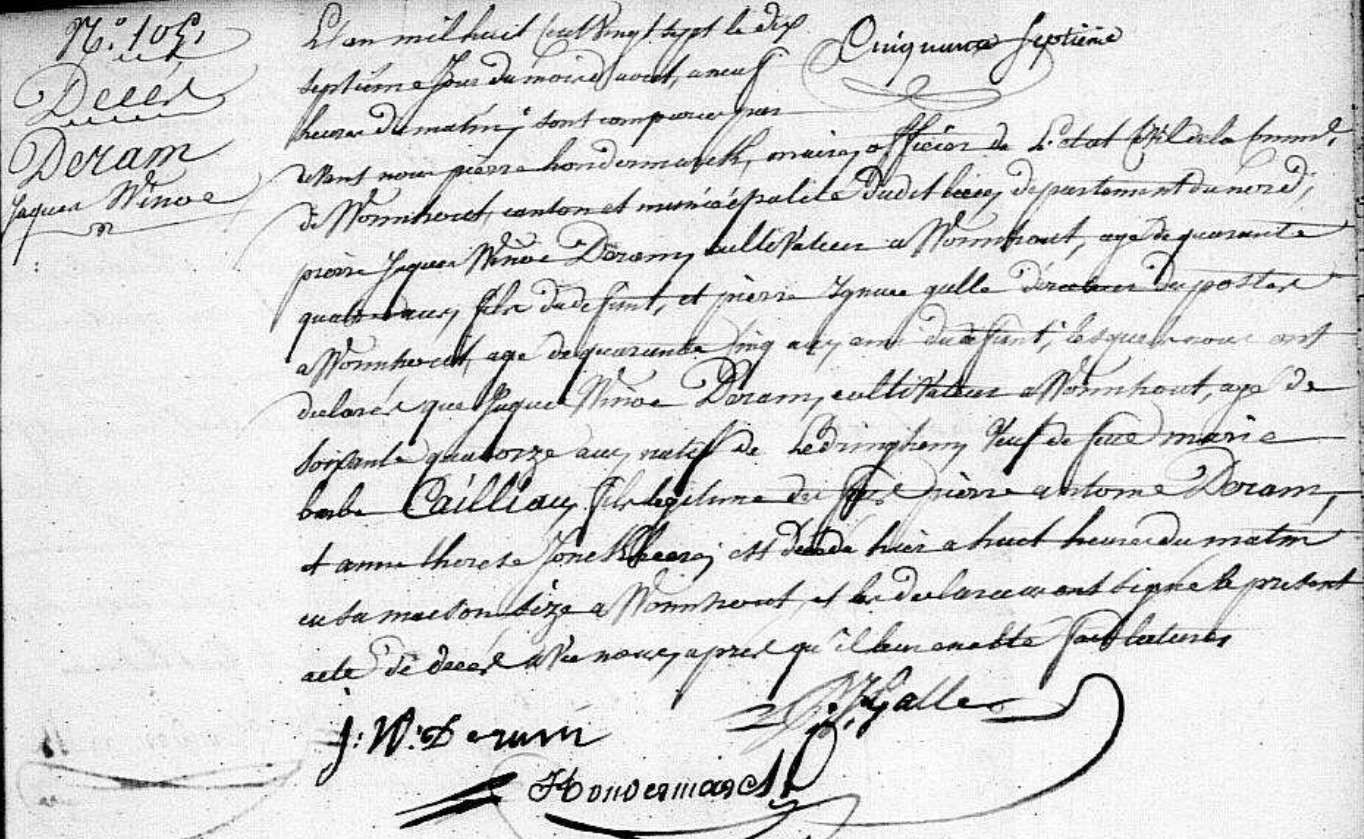 N.° 105,
Décés
Deram
Jaques Winoc
Cinquieme Septieme
L'an mil huit Cent Vingt sept le dix
septiéme Jour du mois d'aout, a neuf
heures du matin, sont comparus par
devant nous pierre hondermarck, maire, officier de L'etat Civil de la Comm.e
de Wormhout, canton et municipalité dudit lieu, departement du nord,
pierre Jaques Winoc Deram, cultivateur a Wormhout, agé de quarante
quatre ans, fils du defunt, et pierre Ignace galle du postes
a Wormhout, agé de quarante Cinq ans, ami du defunt, lesquels nous ont
declarés que Jaques Winoc Deram, cultivateur a Wormhout, agé de
soixante quatorze ans, natif de Ledringhem, Veuf de feue marie
barbe Cailliau, fils legitime des feus pierre antoine Deram,
et anne therese Jonckheere, est décédé hier a huit heures du matin
en sa maison size a Wormhout, et les declarans ont signé le présent
acte de décés avec nous, apres qu'il leur en a été fait lecture,
J: W: Deram
P. J. Galle
Hondermarck